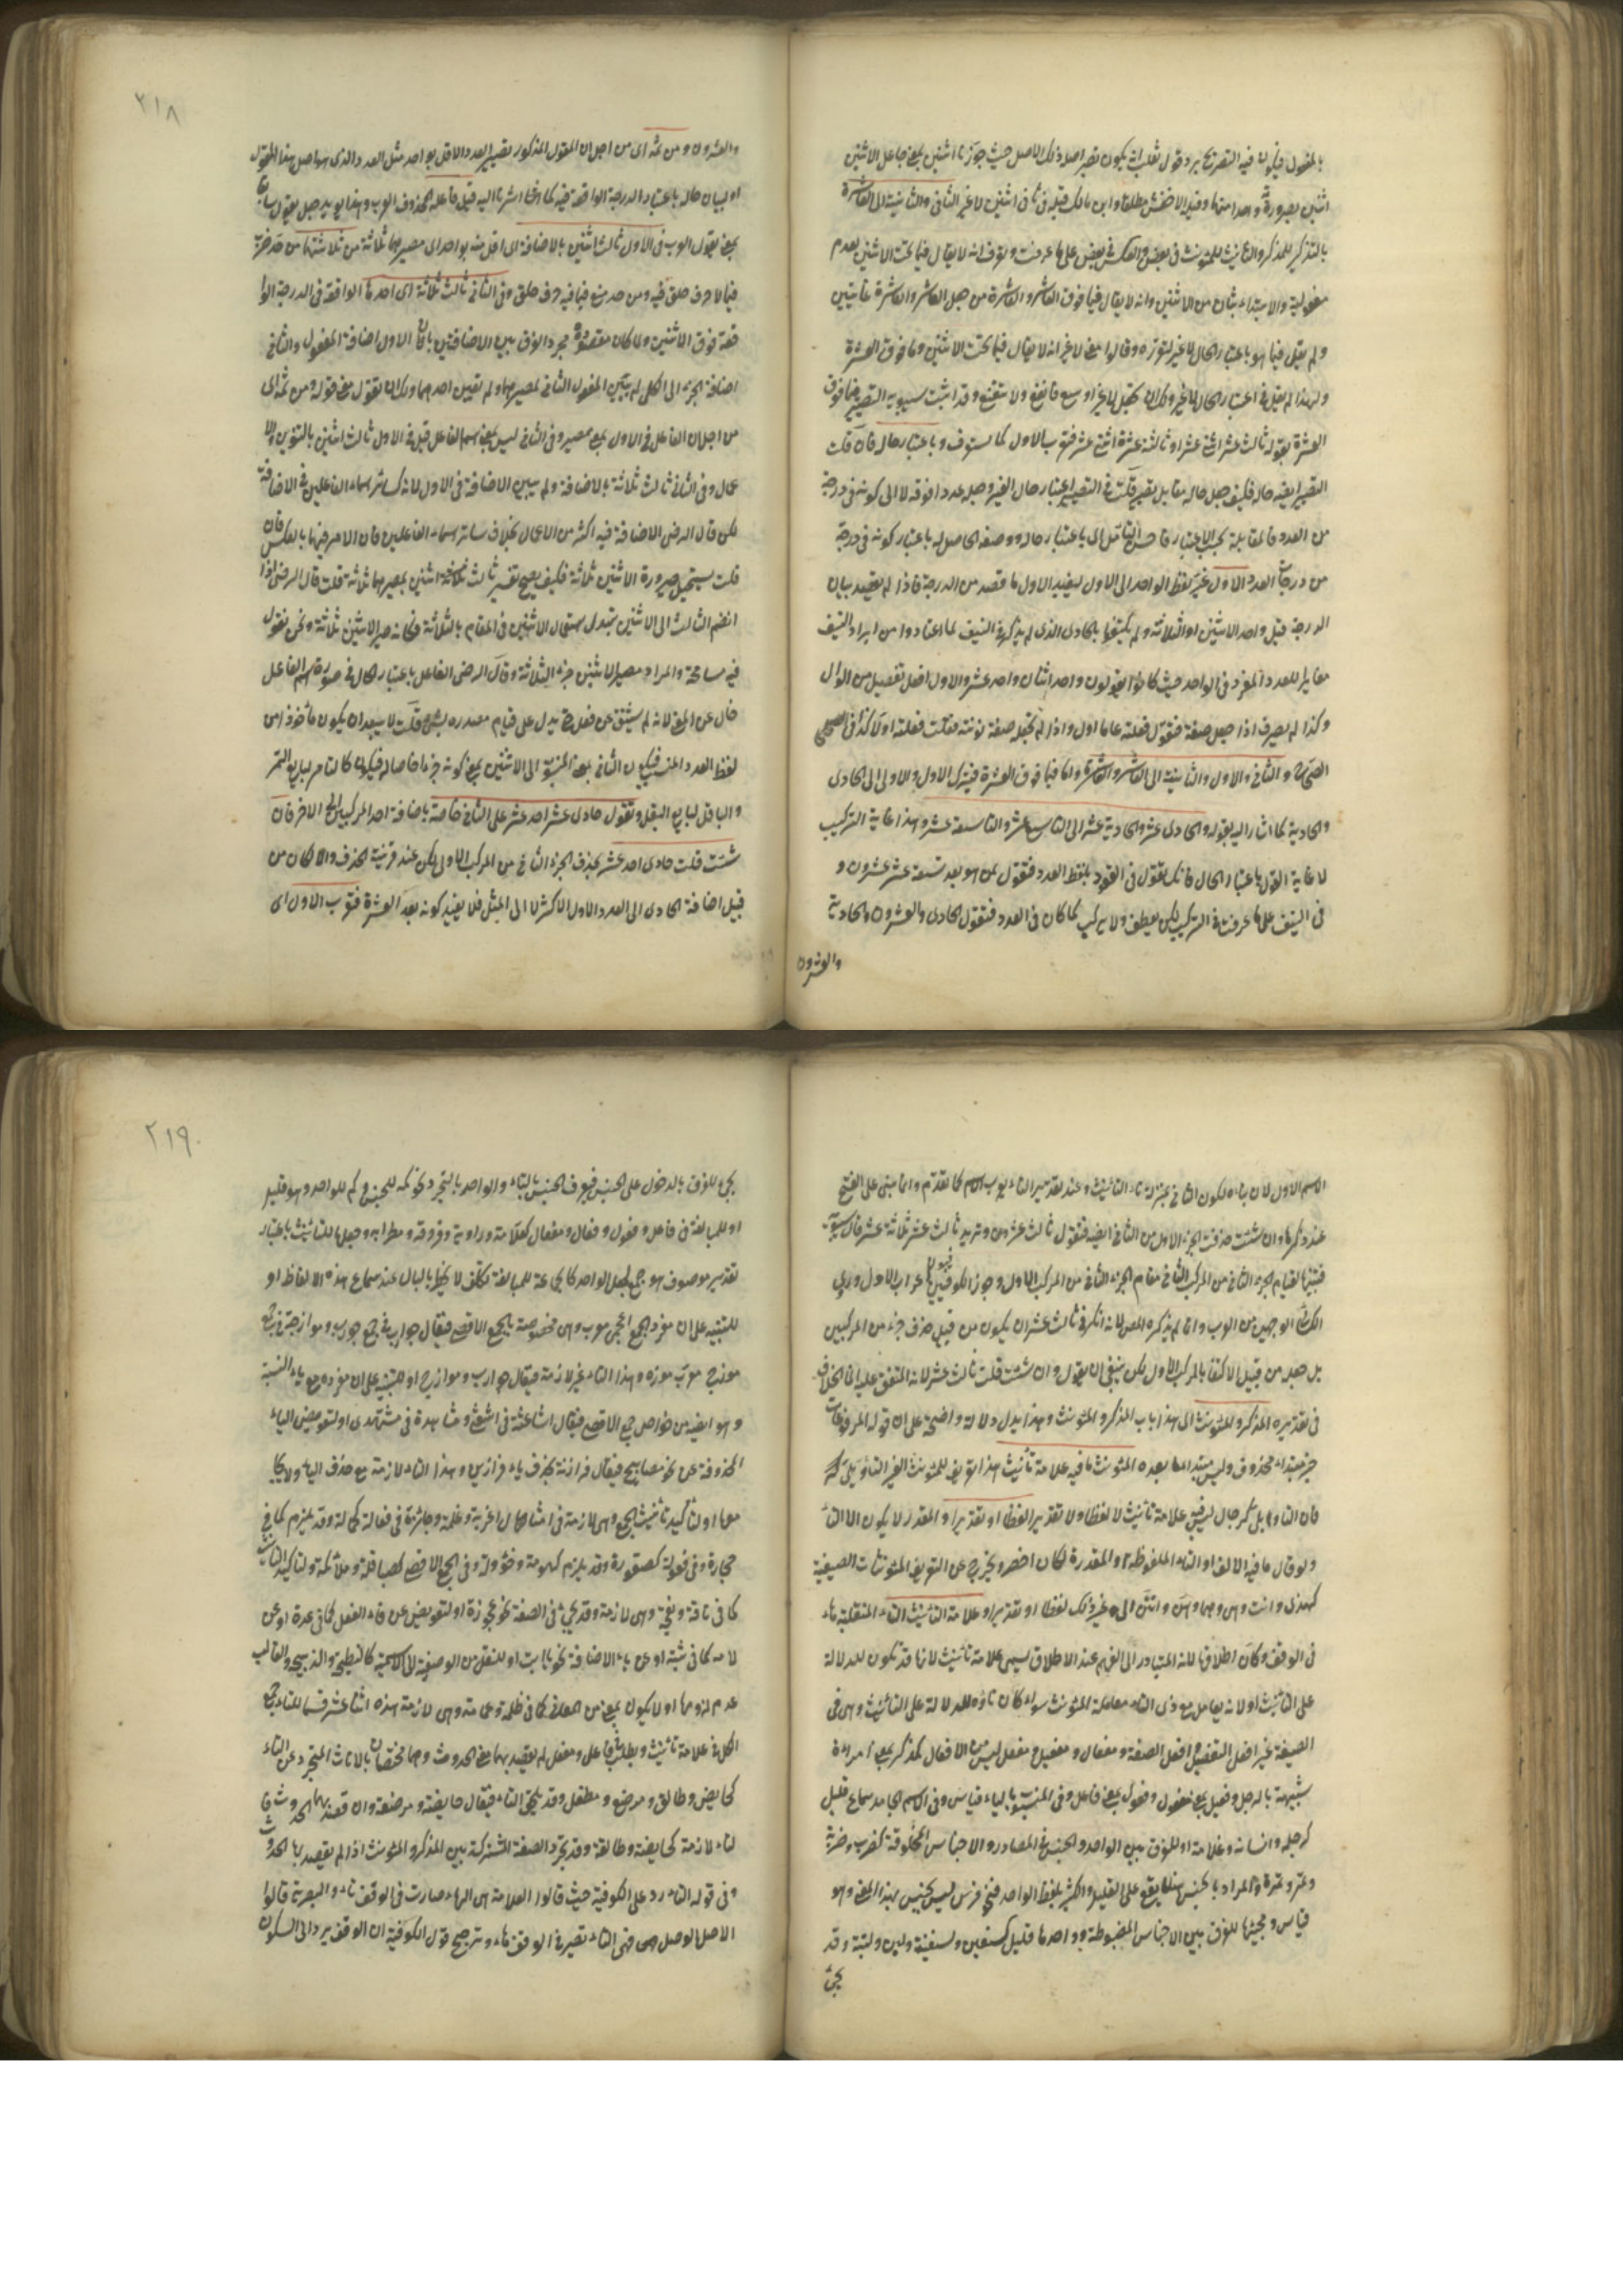 بالمفعول فيكون فيه التصريح برد قول ثعلب انه يكون بغير اصل ذلك الاصل حيث جوز ثانى اثنين بمعنى جاعل الاثنين
اثنين بصيرورة واحد منهما وقيد الاخفش مطلقا وابن مالك قيده فى ثانى اثنين لا غير الثانى والثانية الى العاشرة
بالتذكير للمذكر والتانيث للمؤنث فى بعض والعكس فى بعض على ما عرفت وتعرف انه لا يقال فيما تحت الاثنين لعدم
مفعولية والابتداء بثان من الاثنين وانه لا يقال فيما فوق العاشر والعاشرة من جعل العاشر والعاشرة غايتين
ولم يقل فيما هو باعتبار الحال لا غير وقالوا معنى لا غير انه لا يقال فيما تحت الاثنين وما فوق العشرة
ولهذا لم يقل فى اعتبار الحال لا غير وقد اثبت سيبويه التصيير فيما فوق
العشرة بقوله ثالث عشر اثنى عشر او ثالثة عشرة اثنتى عشرة الاول كما ستعرف وباعتبار حاله فان قلت
التصيير ايضا حاله فكيف جعل حاله مقابل تصيره قلت فى التصيير اعتبار حال الغير وجعله عددا فوقه لا الى كونه فى درجة
من العدد فالمقابلة بحسب الاعتبار باعتبار حاله ووصفه الحاصل له باعتبار كونه فى درجة
من درجات العدد الاول غير لفظ الواحد الى الاول ليفيد الاول ما قصد من الدرجة فاذا لم يقصد بيان
الدرجة قيل واحد الاثنين او الثلاثة ولم يكتفوا بالحادى الذى لم يذكر فى النيف لما اعتادوا من ايراد النيف
مغايرا للعدد المفرد فى الواحد حيث كانوا يقولون واحد اثنان واحد عشر والاول افعل تفضيل من الوال
وكذا لم يصرف اذا جعل صفة فتقول فعلته عاما اول واذا لم تجعله صفة نونته فقلت فعلته اولا كذا فى
الصحاح والثانى والاول والثانية الى العاشر والعاشرة واما فيما فوق العشرة فيترك الاول والاولى الى الحادى
والحادية كما اشار اليه بقوله والحادى عشر والحادية عشرة الى التاسع عشر والتاسعة عشرة وهذا غاية التركيب
لا غاية القول باعتبار الحال فانك تقول فى العقود بلفظ العدد فتقول لمن هو بعد تسعة عشر عشرون و
فى النيف على ما عرفت فى التركيب لكن بعطف ولا تركيب كما كان فى العدد فتقول الحادى والعشرون والحادية
والعشرون
٢١٨
والعشرون ومن ثمه اى من اجل ان المقول المذكور تصيير العدد الاقل بواحد مثل العدد والذى هو اصل هذا المقول
او لبيان حاله باعتبار الدرجة الواقعة فيه كما اشرنا اليه قيل فاعله المحذوف العرب وهذا يؤيد جعل يقول سابقا
بمعنى يقول العرب فى الاول ثالث اثنين بالاضافة الى اقل منه بواحد اى مصيرهما ثلاثة من ثلاثتهما من حد ضرب
فيما لا حرف حلق فيه ومن حد منع فيما فيه حرف حلق وفى الثانى ثالث ثلاثة اى احدها الواقعة فى الدرجة الوا
قعة فوق الاثنين ولما كان مقصوده مجرد الفرق بين الاضافتين بان الاول اضافة المفعول والثانى
اضافة الجزء الى الكل لم يبين المفعول الثانى لمصيرهما ولم تعيين احدهما ولك ان تقول معنى قوله ومن ثمه اى
من اجل ان الفاعل فى الاول بمعنى مصير وفى الثانى ليس بمعنى اسم الفاعل قيل فى الاول ثالث اثنين بالتنوين والا
عمال وفى الثانى ثالث ثلاثة بالاضافة ولم يبين الاضافة فى الاول لانه كسائر اسماء الفاعلين فى الاضافة
لكن قال الرضى الاضافة فيه اكثر من الاعمال بخلاف سائر اسماء الفاعلين فان الامر فيها بالعكس فان
قلت يستحيل صيرورة الاثنين ثلاثة فكيف يصح تفسير ثالث اثنين بمصيرهما ثلاثة قلت قال الرضى اذا
انضم الثالث الى الاثنين تبدل استعمال الاثنين فى المقام بالثلاثة فكانه صير الاثنين ثلاثة ونحن نقول
فيه مسامحة والمراد مصير الاثنين جزء الثلاثة وقال الرضى الفاعل باعتبار الحال فى صورة اسم الفاعل
خال عن المعنى لانه لم يشتق عن فعل يدل على قيام مصدره بشئ قلت لا يبعد ان يكون مأخوذا من
لفظ العدد فيكون الثانى بمعنى المنسوب الى الاثنين بمعنى كونه جزءا خاصا له فيكون كالتامر لبايع التمر
والباقل لبايع البقل وتقول حادى عشر احد عشر على الثانى خاصة باضافة احد المركبين الى الاخر فان
شئت قلت حادى احد عشر بحذف الجزء الثانى من المركب الاول لكن عند قرينة الحذف والا لكان من
قبيل اضافة الحادى الى العدد الاول الاكثر لا الى المثل فلا يفيد كونه بعد العشرة فتعرب الاول اى
الاسم الاول لان بناءه لكون الثانى بمنزلة تاء التانيث وعند تقدير التاء يعرب الاسم كما تقدم وانما مبنى على الفتح
عند ذكرها وان شئت حذفت الجزء الاول من الثانى ايضا فتقول ثالث عشر وتريد ثالث عشر ثلاثة عشر قال سيبويه
فتبنيهما لقيام الجزء الثانى من المركب الثانى مقام الجزء الثانى من المركب الاول وجوز الكوفيون اعراب الاول وروى
الكسائى الوجهين من العرب وانما لم يذكره المص لانه انكر فى ثالث عشر ان يكون من قبيل حذف جزء من المركبين
بل جعله من قبيل الاكتفاء بالمركب الاول لكن ينبغى ان يقول وان شئت قلت ثالث عشر لانه المتفق عليه انما الخلاف
فى تقديره المذكر والمؤنث الى هذا باب المذكر والمؤنث وهذا يدل دلالة واضحة على ان قوله المرفوعات
خبر مبتداء محذوف وليس مبتداء لما بعده المؤنث ما فيه علامة تأنيث هذا تعريف للمؤنث الغير
فان رجال ليس فيه علامة تأنيث لا لفظا ولا تقديرا لفظا او تقديرا والمقدر لا يكون الا التاء
ولو قال ما فيه الالف او التاء الملفوظة او المقدرة لكان اخصر ويخرج عن التعريف المؤنثات الصيغية
كهذى وانت وهى وهما وهن وانتن الى غير ذلك لفظا او تقديرا وعلامة التانيث التاء المنقلبة هاء
فى الوقف وكان اطلاقها لانه المتبادر الى الفهم عند الاطلاق يسمى علامة تانيث لانها قد تكون للدلالة
على التانيث او لانه يعامل مع ذى التاء معاملة المؤنث سواء كان تاؤه للدلالة على التانيث وهى فى
الصفة غير افعل التفضيل وافعل الصفة ومفعال ومفعيل ومفعل ليس من الافعال كمذكر بمعنى امراءة
شبيهة بالرجل وفعيل بمعنى مفعول وفعول بمعنى فاعل وفى المنسوب بالياء قياس وفى الاسم الجامد سماع قليل
كرجلة وانسانة وغلامة او للفرق بين الواحد والجنس فى المصادر والاجناس المخلوقة كضرب وضربة
وتمر وتمرة والمراد بالجنس ما يقع على القليل والكثير بلفظ الواحد فنحو فرس ليس بجنس بهذا المعنى وهو
قياس ومجيئها للفرق بين الاجناس المضبوطة وواحدها قليل كسفين وسفينة ولبن ولبنة وقد
يجئ
٢١٩
يجئ للفرق بالدخول على الجنس فيعرف الجنس بالتاء والواحد بالتجرد نحو كمأة للجنس وكم للواحد وهو قليل
او للمبالغة فى فاعل وفعول وفعال ومفعال كعلامة وراوية وفروقة ومطرابة وجعلها للتانيث باعتبار
تقدير موصوف هو جمع بجعل الواحد كالجماعة للمبالغة تكلف لا يخطر بالبال عند سماع هذه الالفاظ او
للتنبيه على ان مفرد الجمع اعجمى معرب وهى مخصوصة بالجمع الاقصى فيقال جواربة فى جمع جورب وموازجة فى جمع
موزج معرب موزه وهذا التاء غير لازمة فيقال جوارب وموازج او للتنبيه على ان مفرده مع ياء النسبة
وهو ايضا من خواص جمع الاقصى فيقال اشاعثة فى اشعثى ومشاهدة فى مشهدى او لتعويض الياء
المحذوفة عن نحو مصابيح فيقال فرازنة بحذف ياء فرازين وهذا التاء لازمة مع حذف الياء ولا يجا
معها او لتأكيد تأنيث الجمع وهى لازمة فى امثال اغربة وغلمة وجائزة فى فعالة كجمالة وقد يلزم كما فى
حجارة وفى فعولة كصقورة وقد يلزم كعمومة وخؤولة وفى الجمع الاقصى كصياقلة وملائكة ولتاكيد التانيث
كما فى ناقة ونعجة وهى لازمة وقد يجئ فى الصفة نحو عجوزة او لتعويض عن فاء الفعل كما فى عدة او عن
لامه كما فى ثبة او عن ياء الاضافة نحو يا ابت او للنقل من الوصفية الى الاسمية كالنطيحة والذبيحة والغالب
عدم لزومها او لا يكون بمعنى من المعانى كما فى ظلمة وعمامة وهى لازمة هذه اثنا عشر قسما للتاء جمع
الكل فى علامة تأنيث ويطلب فاعل ومفعل لم يقصد بهما معنى الحدوث وهما مختصان بالاناث التجرد عن التاء
كحايض وطالق ومرضع ومطفل وقد يلحق التاء فيقال حايضة ومرضعة وان قصد بهما الحدوث فا
لتاء لازمة كحايضة وطالقة وقد يجرد الصفة المشتركة بين المذكر والمؤنث اذا لم يقصد بها الحدوث
وفى قوله التاء رد على الكوفية حيث قالوا العلامة هى الهاء صارت فى الوقف تاء والبصرية قالوا
الاصل الوصل هى فهى التاء تصير فى الوقف هاء وترجح قول الكوفية ان الوقف يرد الى السكون